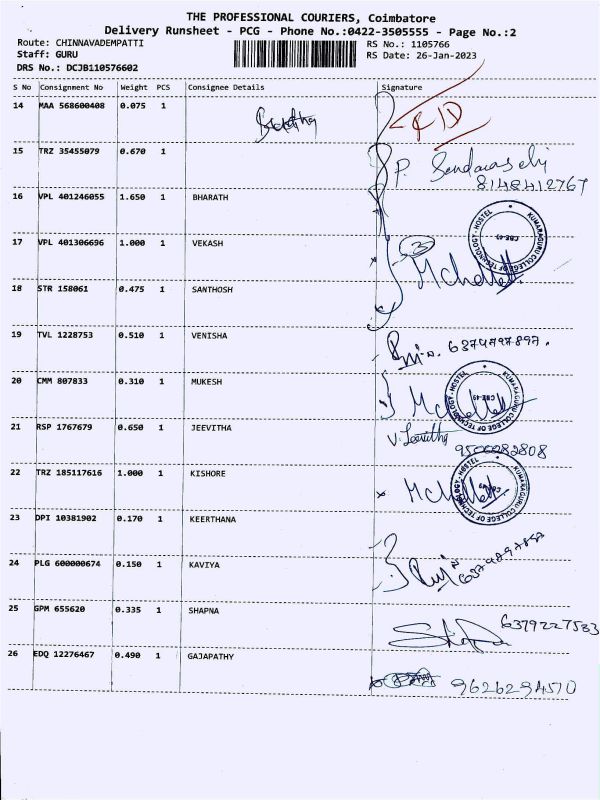 THE PROFESSIONAL COURIERS, Coimbatore
Delivery Runsheet - PCG - Phone No.:0422-3505555 - Page No.:2
Route: CHINNAVADEMPATTI RS No.: 1105766
Staff: GURU RS Date: 26-Jan-2023
DRS No.: DCJB110576602
S No Consignment No Weight PCS Consignee Details Signature
14 MAA 568600408 0.075 1
15 TRZ 35455079 0.670 1 P.
8148412767
16 VPL 401246055 1.650 1 BHARATH
KUMARAGURU COLLEGE OF TECHNOLOGY - HOSTEL CBE-49
17 VPL 401306696 1.000 1 VEKASH 3
18 STR 158061 0.475 1 SANTHOSH
19 TVL 1228753 0.510 1 VENISHA 6374797897.
20 CMM 807833 0.310 1 MUKESH
KUMARAGURU COLLEGE OF TECHNOLOGY - HOSTEL CBE-49
21 RSP 1767679 0.650 1 JEEVITHA
9500082808
22 TRZ 185117616 1.000 1 KISHORE
KUMARAGURU COLLEGE OF TECHNOLOGY - HOSTEL CBE-49
23 DPI 10381902 0.170 1 KEERTHANA
24 PLG 600000674 0.150 1 KAVIYA 6374797897
25 GPM 655620 0.335 1 SHAPNA 6379227583
26 EDQ 12276467 0.490 1 GAJAPATHY
9626294570